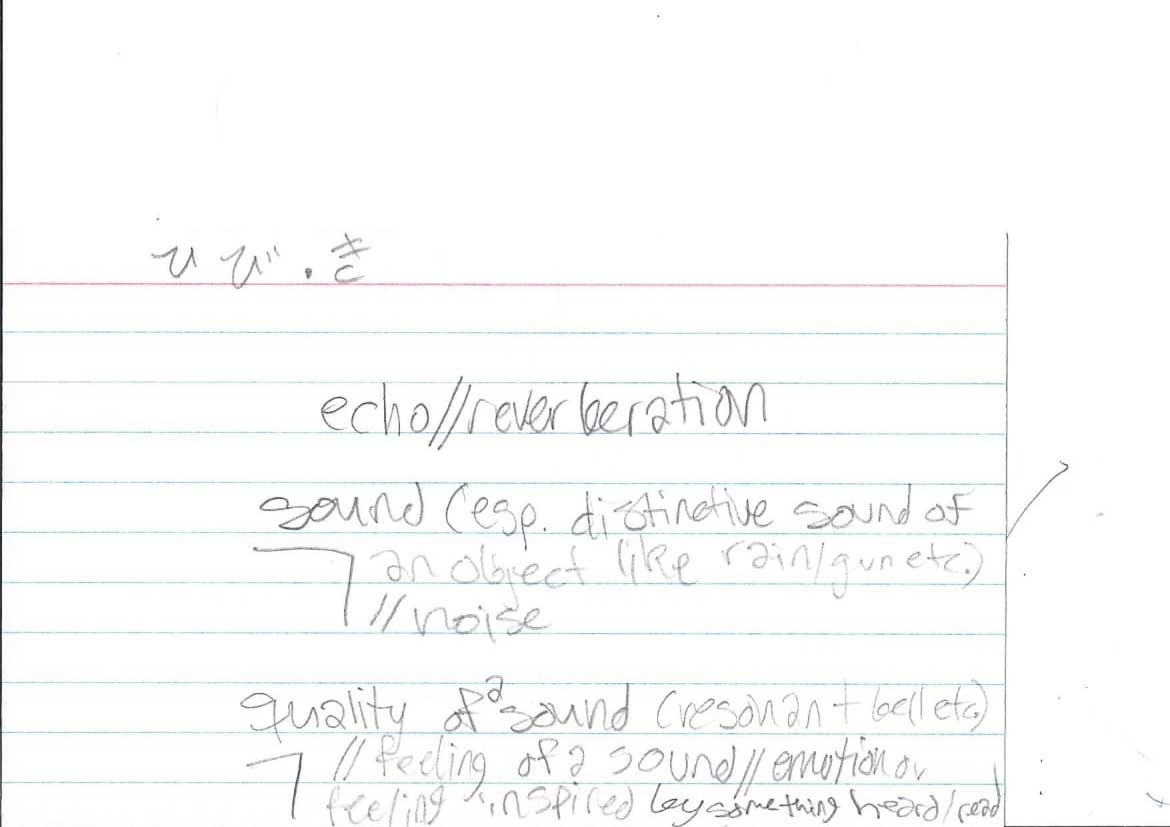 ひび.き
echo//reverberation
sound (esp. distinctive sound of
an object like rain/gun etc.)
//noise
quality of a sound (resonant bell etc.)
//feeling of a sound//emotion or
feeling inspired by something heard/read